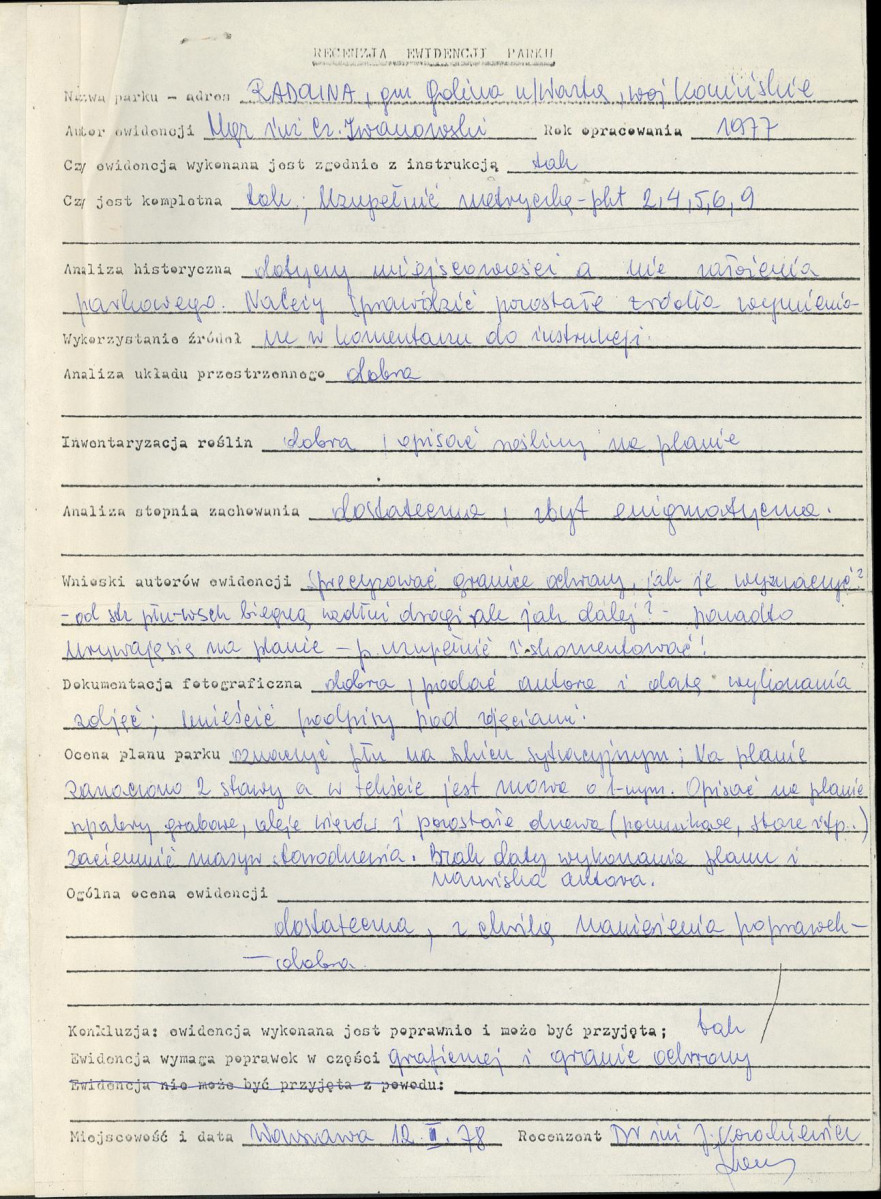 RECENZJA EWIDENCJI PARKU
Nazwa parku - adres RADOLINA, gm Golina n/Wartą, woj Konińskie
Autor ewidencji Mgr inż Cz. Iwanowski Rok opracowania 1977
Czy ewidencja wykonana jest zgodnie z instrukcją tak
Czy jest kompletna tak; Uzupełnić metryczkę - pkt 2,4,5,6,9
Analiza historyczna dotyczy miejscowości a nie założenia
parkowego. Należy sprawdzić pozostałe źródła wymienio-
Wykorzystanie źródeł ne w komentarzu do instrukcji.
Analiza układu przestrzennego dobra
Inwentaryzacja roślin dobra, opisać rośliny na planie
Analiza stopnia zachowania dostateczna, zbyt enigmatyczna.
Wnioski autorów ewidencji sprecyzować granice ochrony, jak je wyznaczyć?
- od str płn-wsch biegną wzdłuż drogi, ale jak dalej? - ponadto
urywają się na planie - p. uzupełnić i skomentować!
Dokumentacja fotograficzna dobra, podać autora i datę wykonania
zdjęć; umieścić podpisy pod zdjęciami.
Ocena planu parku oznaczyć płn na szkicu sytuacyjnym; Na planie
zaznaczono 2 stawy a w tekście jest mowa o 1-nym. Opisać na planie
szpalery grabowe, aleje wiązów i pozostałe drzewa (pomnikowe, stare itp..)
zaciemnić masyw starodrzewia. Brak daty wykonania planu i
nazwiska autora.
Ogólna ocena ewidencji
dostateczna, z chwilą naniesienia poprawek -
- dobra.
Konkluzja: ewidencja wykonana jest poprawnie i może być przyjęta; tak
Ewidencja wymaga poprawek w części graficznej i granic ochrony
Ewidencja nie może być przyjęta z powodu:
Miejscowość i data Warszawa 12.II.78 Recenzent Dr inż J.